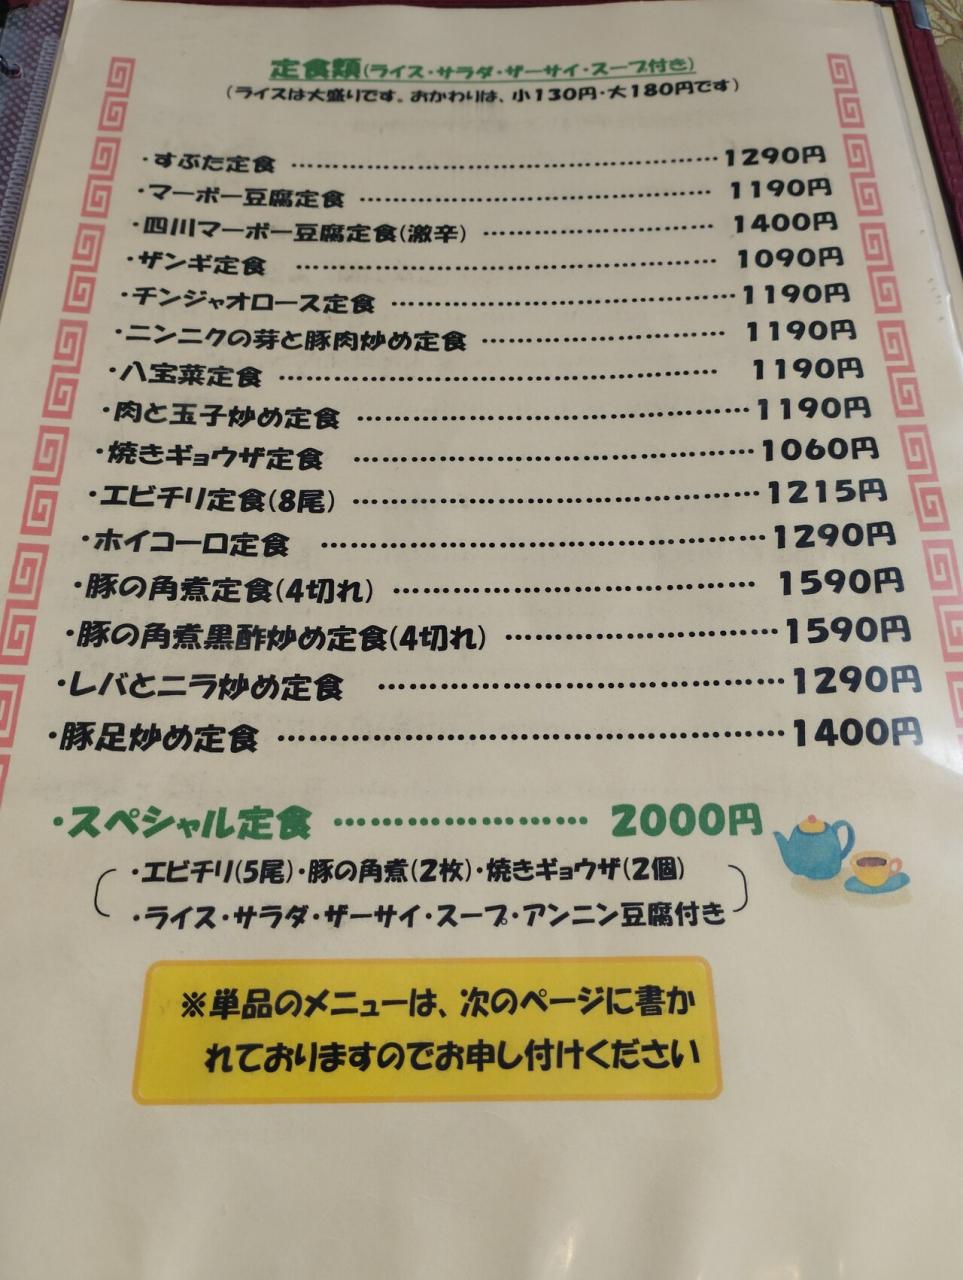 定食類(ライス・サラダ・ザーサイ・スープ付き)
(ライスは大盛りです。おかわりは、小130円・大180円です)
・すぶた定食 ……………………………………… 1290円
・マーボー豆腐定食 ……………………………… 1190円
・四川マーボー豆腐定食(激辛) ………………… 1400円
・ザンギ定食 ……………………………………… 1090円
・チンジャオロース定食 ………………………… 1190円
・ニンニクの芽と豚肉炒め定食 ………………… 1190円
・八宝菜定食 ……………………………………… 1190円
・肉と玉子炒め定食 ……………………………… 1190円
・焼きギョウザ定食 ……………………………… 1060円
・エビチリ定食(8尾) …………………………… 1215円
・ホイコーロ定食 ………………………………… 1290円
・豚の角煮定食(4切れ) ………………………… 1590円
・豚の角煮黒酢炒め定食(4切れ) ……………… 1590円
・レバとニラ炒め定食 …………………………… 1290円
・豚足炒め定食 …………………………………… 1400円
・スペシャル定食 …………………… 2000円
・エビチリ(5尾)・豚の角煮(2枚)・焼きギョウザ(2個)
・ライス・サラダ・ザーサイ・スープ・アンニン豆腐付き
※単品のメニューは、次のページに書か
れておりますのでお申し付けください